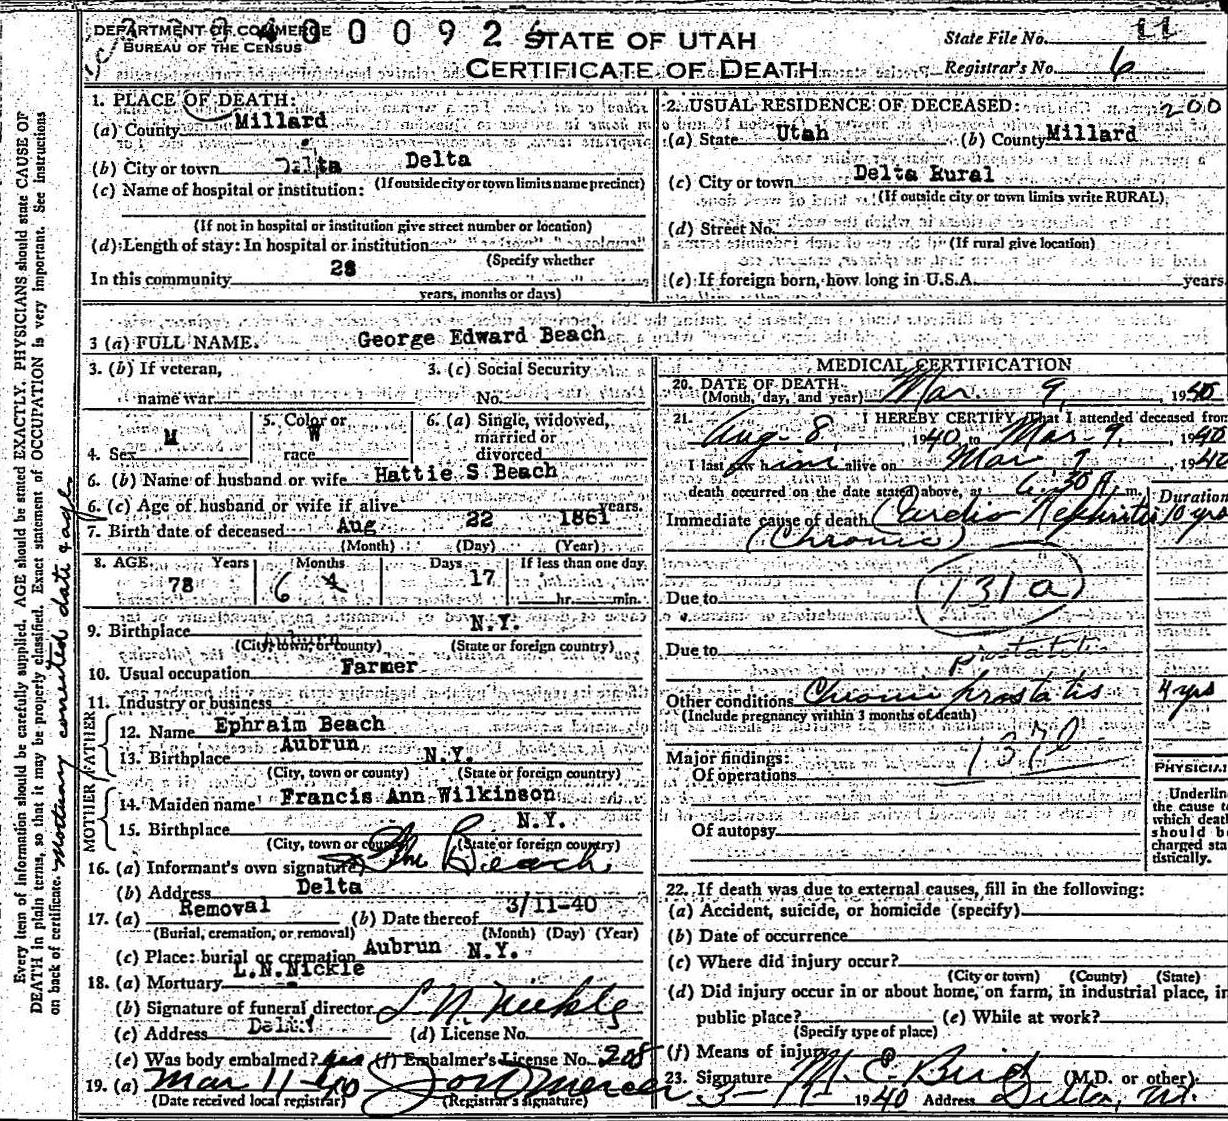 DEPARTMENT OF COMMERCE
BUREAU OF THE CENSUS
0 0 0 9 2
STATE OF UTAH
CERTIFICATE OF DEATH
State File No. 11
Registrar's No. 6
1. PLACE OF DEATH:
(a) County Millard
(b) City or town Delta Delta
(If outside city or town limits name precinct)
(c) Name of hospital or institution:
(If not in hospital or institution give street number or location)
(d) Length of stay: In hospital or institution
(Specify whether
In this community 28
years, months or days)
2. USUAL RESIDENCE OF DECEASED: 200
(a) State Utah (b) County Millard
(c) City or town Delta Rural
(If outside city or town limits write RURAL)
(d) Street No.
(If rural give location)
(e) If foreign born, how long in U.S.A. years
3 (a) FULL NAME. George Edward Beach
3. (b) If veteran,
name war
3. (c) Social Security
No.
4. Sex M
5. Color or
race W
6. (a) Single, widowed,
married or
divorced
6. (b) Name of husband or wife Hattie S Beach
6. (c) Age of husband or wife if alive years.
7. Birth date of deceased Aug 22 1861
(Month) (Day) (Year)
8. AGE Years Months Days If less than one day
78 6 4 17 hr. min.
9. Birthplace Auburn N.Y.
(City, town, or county) (State or foreign country)
10. Usual occupation Farmer
11. Industry or business
FATHER
12. Name Ephraim Beach
13. Birthplace Aubrun N.Y.
(City, town or county) (State or foreign country)
MOTHER
14. Maiden name Francis Ann Wilkinson
15. Birthplace N.Y.
(City, town or county) (State or foreign country)
16. (a) Informant's own signature Beach
(b) Address Delta
17. (a) Removal (b) Date thereof 3/11-40
(Burial, cremation, or removal) (Month) (Day) (Year)
(c) Place: burial or cremation Aubrun N.Y.
18. (a) Mortuary L.N.Nickle
(b) Signature of funeral director L N Nickle
(c) Address Delta (d) License No.
(e) Was body embalmed? yes (f) Embalmer's License No. 208
19. (a) Mar 11-40
(Date received local registrar) (Registrar's signature)
MEDICAL CERTIFICATION
20. DATE OF DEATH Mar. 9, 1940
(Month, day, and year)
21. I HEREBY CERTIFY, That I attended deceased from
Aug-8, 1940, to Mar-9, 1940
I last saw him alive on Mar 9, 1940
death occurred on the date stated above, at 6:30 A. m.
Duration
Immediate cause of death Cardio Nephritis 10 yrs
(Chronic)
131a
Due to
Due to
prostatitis
Other conditions Chronic prostatis 4 yrs
(Include pregnancy within 3 months of death)
Major findings:
Of operations
Of autopsy
PHYSICIAN
Underlin
the cause t
which deat
should b
charged sta
tistically.
22. If death was due to external causes, fill in the following:
(a) Accident, suicide, or homicide (specify)
(b) Date of occurrence
(c) Where did injury occur?
(City or town) (County) (State)
(d) Did injury occur in or about home, on farm, in industrial place, in
public place? (e) While at work?
(Specify type of place)
(f) Means of injury
23. Signature M. E. Bird (M.D. or other)
3-11 1940 Address Delta, Ut.
Every item of information should be carefully supplied. AGE should be stated EXACTLY. PHYSICIANS should state CAUSE OF
DEATH in plain terms, so that it may be properly classified. Exact statement of OCCUPATION is very important. See instructions
on back of certificate. Mortuary corrected date & age